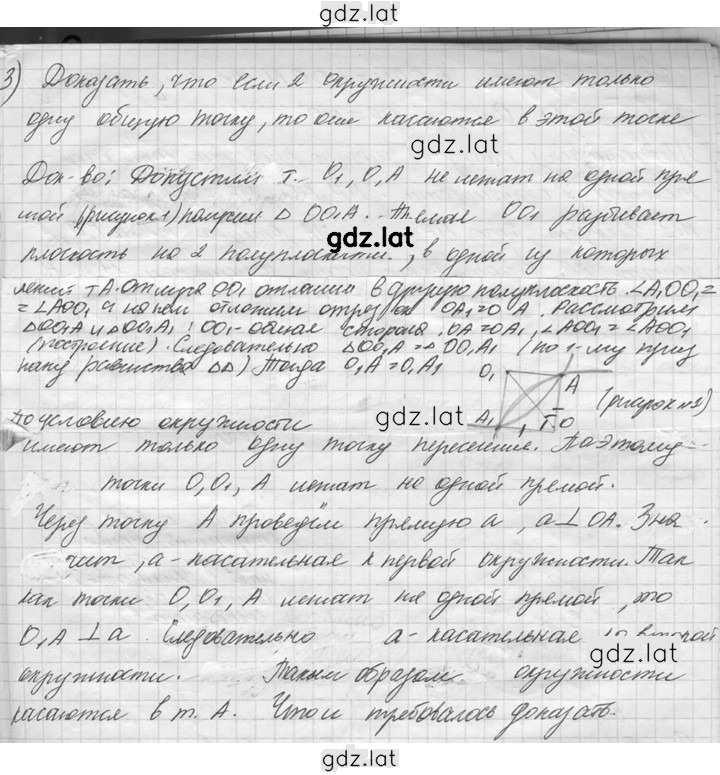 gdz.lat
3) Доказать, что если 2 окружности имеют только
одну общую точку, то они касаются в этой точке
gdz.lat
Док-во: Допустим т. O₁, O, A не лежат на одной пря
мой (рисунок 1) получим △ OO₁A. Прямая OO₁ разбивает
gdz.lat
плоскость на 2 полуплоскости, в одной из которых
лежит т A. От луча OO₁ отложим в другую полуплоскость ∠A₁OO₁=
=∠AOO₁ и на нем отложим отрезок OA₁=OA. Рассмотрим
△OO₁A и △OO₁A₁: OO₁-общая сторона. OA=OA₁, ∠AOO₁=∠A₁OO₁
(построение). Следовательно △OO₁A=△OO₁A₁ (по 1-му приз
наку равенства △△) Тогда O₁A=O₁A₁
O₁ A
A₁ O
(рисунок №1)
gdz.lat
По условию окружности
имеют только одну точку пересечения. Поэтому
точки O, O₁, A лежат на одной прямой.
gdz.lat
Через точку A проведём прямую a, a⊥OA. Зна
чит, a-касательная к первой окружности. Так
как точки O, O₁, A лежат на одной прямой, то
O₁A ⊥ a. Следовательно a-касательная ко второй
gdz.lat
окружности. Таким образом окружности
касаются в т. A. Что и требовалось доказать.
gdz.lat